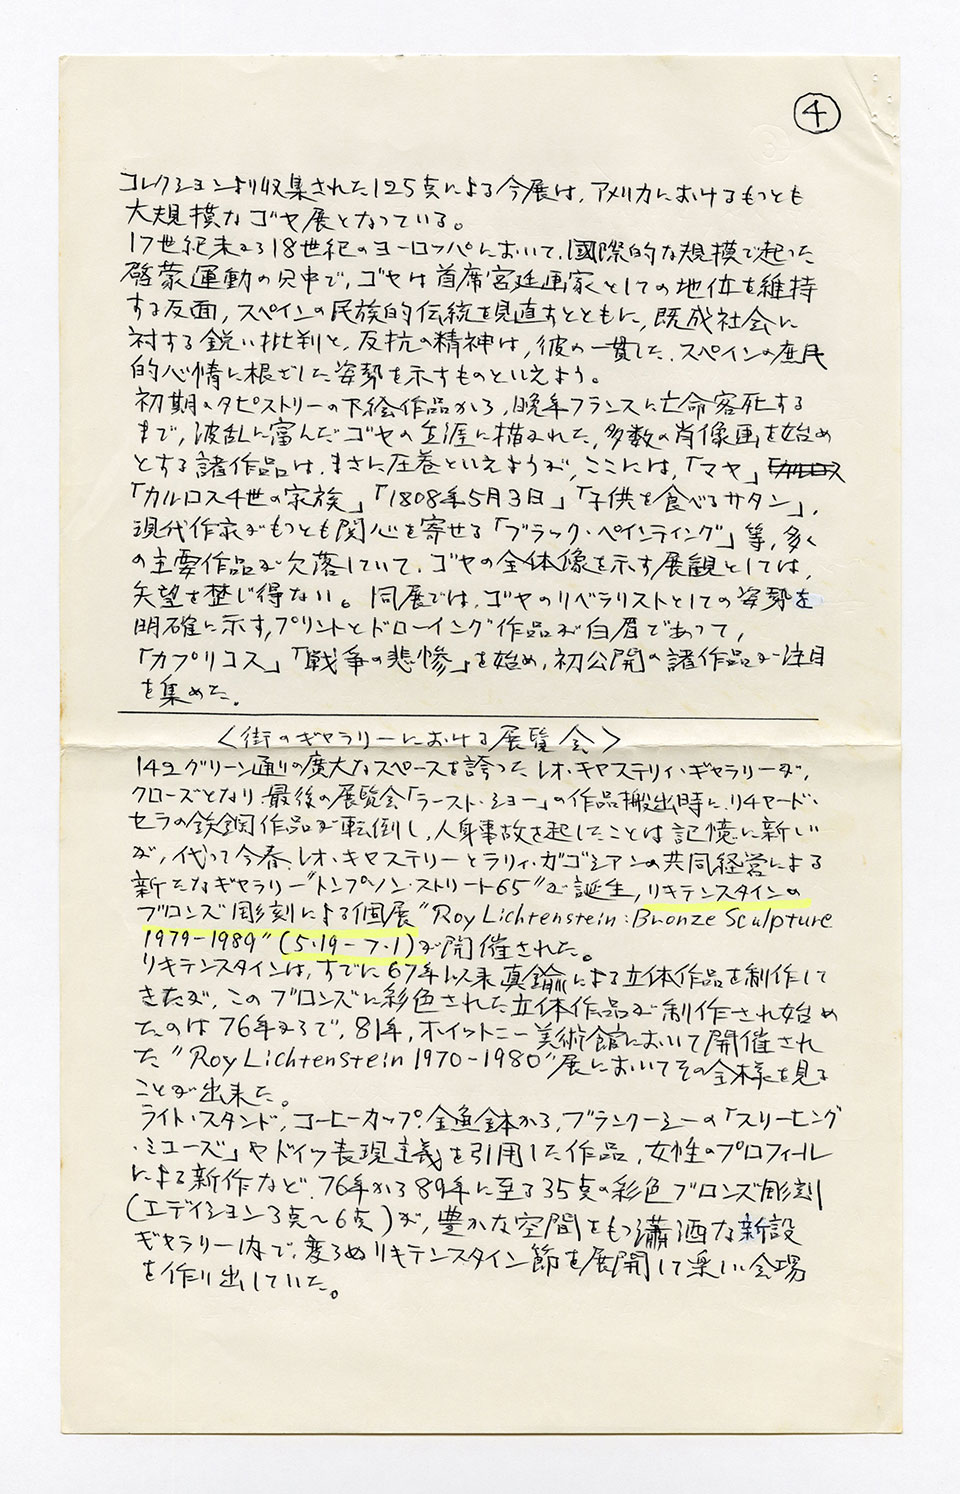 ④
コレクションより収集された125点による今展は、アメリカにおけるもっとも
大規模なゴヤ展となっている。
17世紀末から18世紀のヨーロッパにおいて、国際的な規模で起った
啓蒙運動の只中で、ゴヤは首席宮廷画家としての地位を維持
する反面、スペインの民族的伝統を見直すとともに、既成社会に
対する鋭い批判と、反抗の精神は、彼の一貫した、スペインの庶民
的心情に根ざした姿勢を示すものといえよう。
初期のタピストリーの下絵作品から、晩年フランスに亡命客死する
まで、波乱に富んだゴヤの生涯に描かれた、多数の肖像画を始め
とする諸作品は、まさに圧巻といえようが、ここには、「マヤ」
「カルロス4世の家族」「1808年5月3日」「子供を食べるサタン」、
現代作家がもっとも関心を寄せる「ブラック・ペインティング」等、多く
の主要作品が欠落していて、ゴヤの全体像を示す展観としては、
失望を禁じ得ない。同展では、ゴヤのリベラリストとしての姿勢を
明確に示す、プリントとドローイング作品が白眉であって、
「カプリコス」「戦争の悲惨」を始め、初公開の諸作品が注目
を集めた。
〈街のギャラリーにおける展覧会〉
142グリーン通りの廣大なスペースを誇ったレオ・キャステリィ・ギャラリーが、
クローズとなり、最後の展覧会「ラースト・ショー」の作品搬出時に、リチャード・
セラの鉄鋼作品が転倒し、人身事故を起したことは記憶に新しい
が、代って今春、レオ・キャステリーとラリィ・ガゴシアンの共同経営による
新たなギャラリー"トンプソン・ストリート65"が誕生、リキテンスタインの
ブロンズ彫刻による個展"Roy Lichtenstein: Bronze Sculpture
1979-1989"(5.19-7.1)が開催された。
リキテンスタインは、すでに67年以来真鍮による立体作品を制作して
きたが、このブロンズに彩色された立体作品が制作され始め
たのは76年からで、81年、ホイットニー美術館において開催され
た"Roy Lichtenstein 1970-1980"展においてその全様を見る
ことが出来た。
ライト・スタンド、コーヒーカップ、金魚鉢から、ブランクーシーの「スリーピング
・ミューズ」やドイツ表現主義を引用した作品、女性のプロフィール
による新作など、76年から89年に至る35点の彩色ブロンズ彫刻
(エディション3点〜6点)が、豊かな空間をもつ瀟洒な新設
ギャラリー内で、変らぬリキテンスタイン節を展開して楽しい会場
を作り出していた。